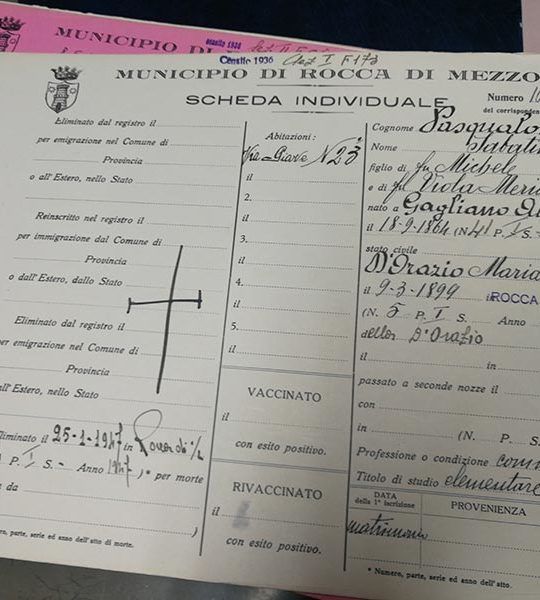 MUNICIPIO DI
Censito 1936
MUNICIPIO DI ROCCA DI MEZZO
SCHEDA INDIVIDUALE
Numero
del corrispondente
Eliminato dal registro il
per emigrazione nel Comune di
Provincia
o all'Estero, nello Stato
Reinscritto nel registro il
per immigrazione dal Comune di
Provincia
o dall'Estero, dallo Stato
Eliminato dal registro il
per emigrazione nel Comune di
Provincia
all'Estero, nello Stato
Eliminato il 25-1-1947 in
P. I S. - Anno 1947 )* per morte
da
)
Numero, parte, serie ed anno dell'atto di morte.
Abitazioni :
Via Piave N 23
il
2.
il
3.
il
4.
il
5.
il
VACCINATO
il
con esito positivo.
RIVACCINATO
il
con esito positivo.
Cognome
Nome
figlio di fu Michel
e di fu Viola
nato a Gagliano
il 18-9-1864 (N. 41 P. I S. -
stato civile
D'Orazio Maria
il 9-3-1899 in ROCCA
(N. 5 P. I S. Anno
D'Orazio
il in
passato a seconde nozze il
con
in (N. P. S.
Professione o condizione
Titolo di studio elementare
DATA
della 1ª iscrizione
PROVENIENZA
matrimonio
* Numero, parte, serie ed anno dell'atto.